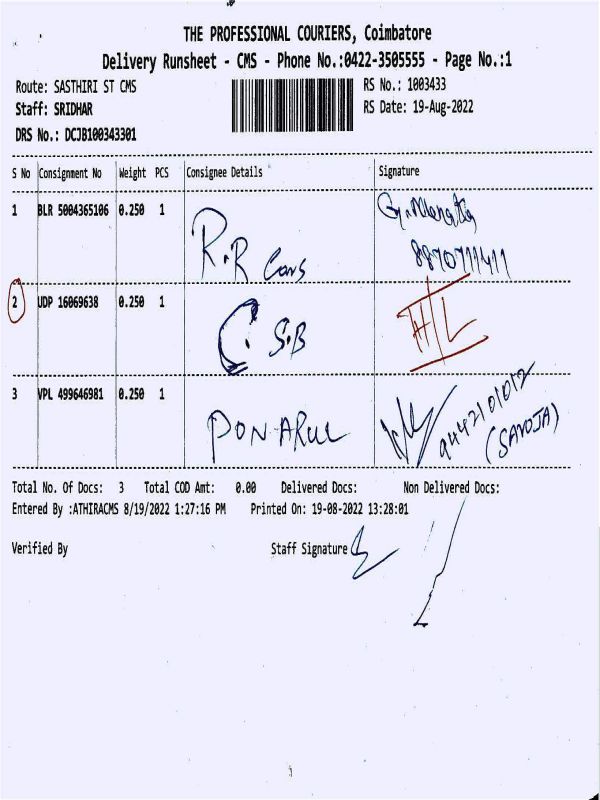 THE PROFESSIONAL COURIERS, Coimbatore
Delivery Runsheet - CMS - Phone No.:0422-3505555 - Page No.:1
Route: SASTHIRI ST CMS
RS No.: 1003433
Staff: SRIDHAR
RS Date: 19-Aug-2022
DRS No.: DCJB100343301
S No Consignment No Weight PCS Consignee Details Signature
1 BLR 5004365106 0.250 1 R.R Cons
8870711411
2 UDP 16069638 0.250 1 C. S.B
3 VPL 499646981 0.250 1 PON ARUL 9442101012
(SAROJA)
Total No. Of Docs: 3 Total COD Amt: 0.00 Delivered Docs: Non Delivered Docs:
Entered By :ATHIRACMS 8/19/2022 1:27:16 PM Printed On: 19-08-2022 13:28:01
Verified By Staff Signature